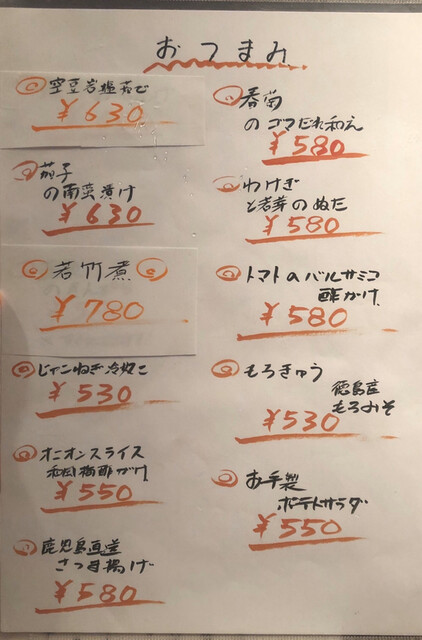 おつまみ
空豆岩塩茹で
¥630
茄子
の南蛮漬け
¥630
若竹煮
¥780
じゃこねぎ冷奴
¥530
オニオンスライス
梅酢がけ
¥550
鹿児島直送
さつま揚げ
¥580
春菊
のゴマだれ和え
¥580
わけぎ
と若芽のぬた
¥580
トマトのバルサミコ
酢かけ
¥580
もろきゅう
徳島産
もろみそ
¥530
お手製
ポテトサラダ
¥550